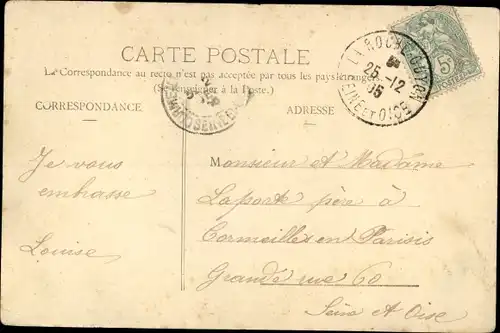 CARTE POSTALE
La Correspondance au recto n'est pas acceptée par tous les pays étrangers
(Se renseigner à la Poste.)
CORRESPONDANCE
ADRESSE
LA ROCHE-GUYON
25 -12
05
SEINE ET OISE
5
Je vous
embrasse
Louise
Monsieur et Madame
Laporte père à
Cormeilles en Parisis
Grande rue 60
Seine et Oise